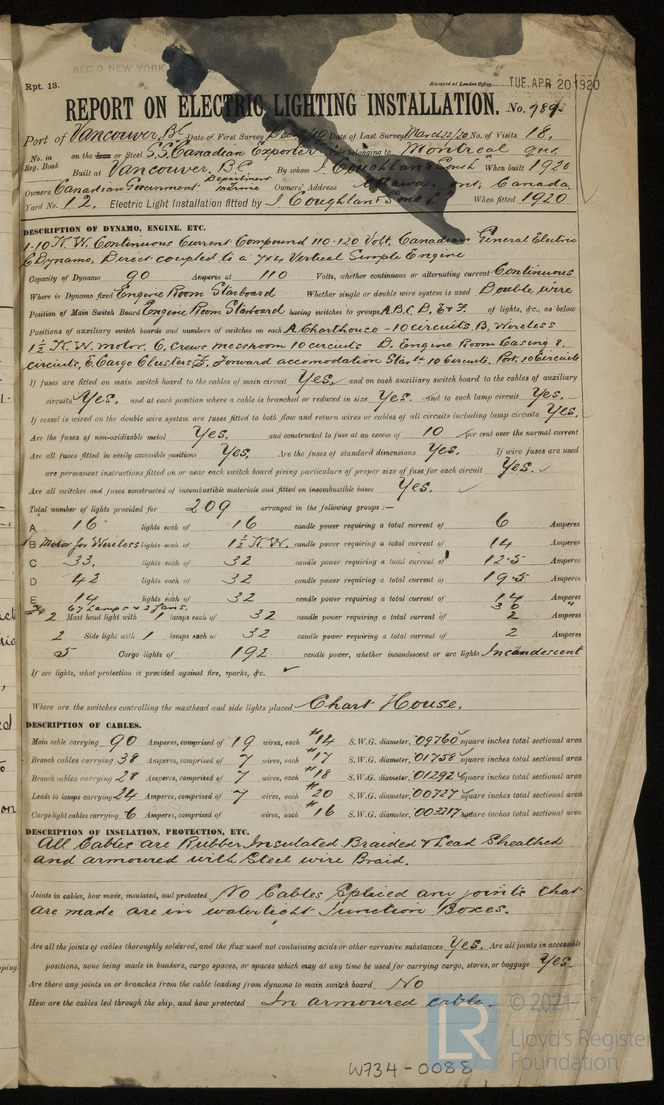 REC'D NEW YORK
Rpt. 13.
Received at London Office TUE. APR. 20 1920
REPORT ON ELECTRIC LIGHTING INSTALLATION. No. 989
Port of Vancouver, B.C. Date of First Survey Date of Last Survey March 22/20 No. of Visits 18.
No. in Reg. Book on the Iron or Steel S.S. "Canadian Exporter" belonging to Montreal Que.
Built at Vancouver, B.C. By whom J. Coughlan & Sons When built 1920
Owners Canadian Government Department Marine Owners' Address Ottawa, Ont, Canada
Yard No. 12. Electric Light Installation fitted by J. Coughlan & Sons When fitted 1920
DESCRIPTION OF DYNAMO, ENGINE, ETC.
1-10 K.W. Continuous Current Compound 110-120 Volt, Canadian General Electric
Dynamo, Direct coupled to a 7x4 Vertical Simple Engine
Capacity of Dynamo 90 Amperes at 110 Volts, whether continuous or alternating current Continuous
Where is Dynamo fixed Engine Room Starboard Whether single or double wire system is used Double wire
Position of Main Switch Board Engine Room Starboard having switches to groups A, B, C, D, E & F. of lights, &c., as below
Positions of auxiliary switch boards and numbers of switches on each A Charthouse - 10 circuits, B. Wireless
1½ K.W. motor, C. Crews messroom 10 circuits D. Engine Room Casing 8.
circuits, E. Cargo Clusters F. Forward accomodation Starbd 10 Circuits. Port. 10 Circuits
If fuses are fitted on main switch board to the cables of main circuit Yes. and on each auxiliary switch board to the cables of auxiliary
circuits Yes. and at each position where a cable is branched or reduced in size Yes. and to each lamp circuit Yes.
If vessel is wired on the double wire system are fuses fitted to both flow and return wires or cables of all circuits including lamp circuits Yes.
Are the fuses of non-oxidizable metal Yes. and constructed to fuse at an excess of 10 per cent over the normal current
Are all fuses fitted in easily accessible positions Yes. Are the fuses of standard dimensions Yes. If wire fuses are used
are permanent instructions fitted on or near each switch board giving particulars of proper size of fuse for each circuit Yes.
Are all switches and fuses constructed of incombustible materials and fitted on incombustible bases Yes.
Total number of lights provided for 209 arranged in the following groups :—
A 16 lights each of 16 candle power requiring a total current of 6 Amperes
B Motor for Wireless lights each of 1½ K.W. candle power requiring a total current of 14 Amperes
C 33. lights each of 32 candle power requiring a total current of 12.5 Amperes
D 42 lights each of 32 candle power requiring a total current of 19.5 Amperes
E 14 lights each of 32 candle power requiring a total current of 14 Amperes
67 Lamps & 2 Fans. 30 "
2 Mast head light with 1 lamps each of 32 candle power requiring a total current of 2 Amperes
2 Side light with 1 lamps each of 32 candle power requiring a total current of 2 Amperes
5 Cargo lights of 192 candle power, whether incandescent or arc lights Incandescent
If arc lights, what protection is provided against fire, sparks, &c.
Where are the switches controlling the masthead and side lights placed Chart House.
DESCRIPTION OF CABLES.
Main cable carrying 90 Amperes, comprised of 19 wires, each #14 S.W.G. diameter, .09760 square inches total sectional area
Branch cables carrying 38 Amperes, comprised of 7 wires, each #17 S.W.G. diameter, .01758 square inches total sectional area
Branch cables carrying 28 Amperes, comprised of 7 wires, each #18 S.W.G. diameter, .01292 square inches total sectional area
Leads to lamps carrying 24 Amperes, comprised of 7 wires, each #20 S.W.G. diameter, .00727 square inches total sectional area
Cargo light cables carrying 6 Amperes, comprised of wires, each #16 S.W.G. diameter, .003217 square inches total sectional area
DESCRIPTION OF INSULATION, PROTECTION, ETC.
All Cables are Rubber Insulated Braided & Lead Sheathed
and armoured with Steel wire Braid.
Joints in cables, how made, insulated, and protected No Cables Spliced any joints that
are made are in watertight Junction Boxes.
Are all the joints of cables thoroughly soldered, and the flux used not containing acids or other corrosive substances Yes. Are all joints in accessible
positions, none being made in bunkers, cargo spaces, or spaces which may at any time be used for carrying cargo, stores, or baggage Yes
Are there any joints in or branches from the cable leading from dynamo to main switch board No
How are the cables led through the ship, and how protected In armoured cable.
© 2021
LR
Lloyd's Register
Foundation
W734-0088